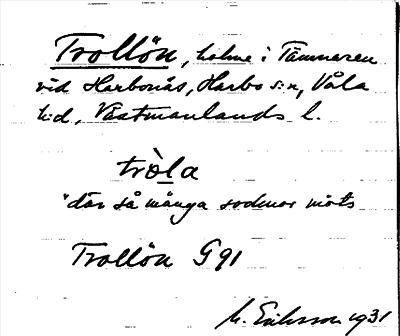 Trollön, holme i Tämnaren
vid Harbonäs, Harbo s:n, Våla
h:d, Västmanlands l.
tròla
"där så många socknar möts
Trollön G 91
M. Eriksson 1931